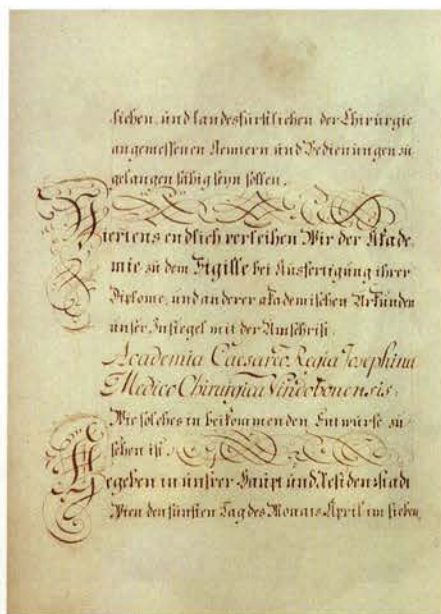 lichen, und landesfürstlichen der Chirurgie
angemessenen Aemtern und Bedienungen zu
gelangen fähig seyn sollen.
Viertens endlich verleihen Wir der Akade-
mie zu dem Sigille bei Ausfertigung ihrer
Diplome, und anderer akademischen Urkunden
unser Insiegel mit der Umschrift:
Academia Caesareo Regia Josephina
Medico Chirurgica Vindobonensis.
Wie solches in beikommenden Entwurfe zu
sehen ist.
Gegeben in unsrer Haupt und Residenzstadt
Wien den fünften Tag des Monats April im sieben